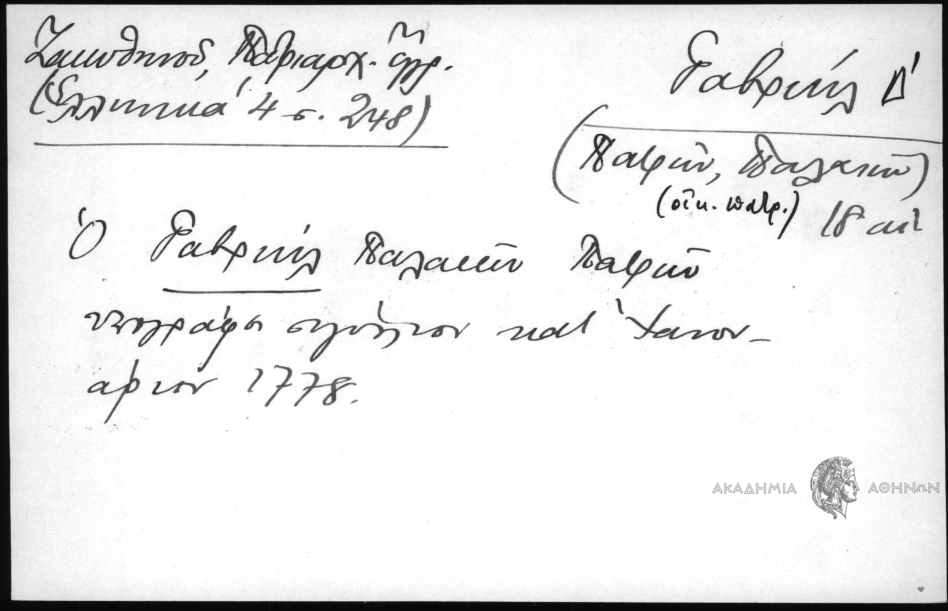 Ζακυθηνοῦ, Πατριαρχ. ἔγγρ.
(Ἑλληνικά 4 σ. 248)
Γαβριήλ Δ΄
(Πατρῶν, Παλαιῶν)
(οἰκ. πατρ.) 18 αἰ.
Ὁ Γαβριήλ Παλαιῶν Πατρῶν
ὑπογράφει σιγίλλιον κατ᾽ Ἰανου-
άριον 1778.
ΑΚΑΔΗΜΙΑ ΑΘΗΝΩΝ